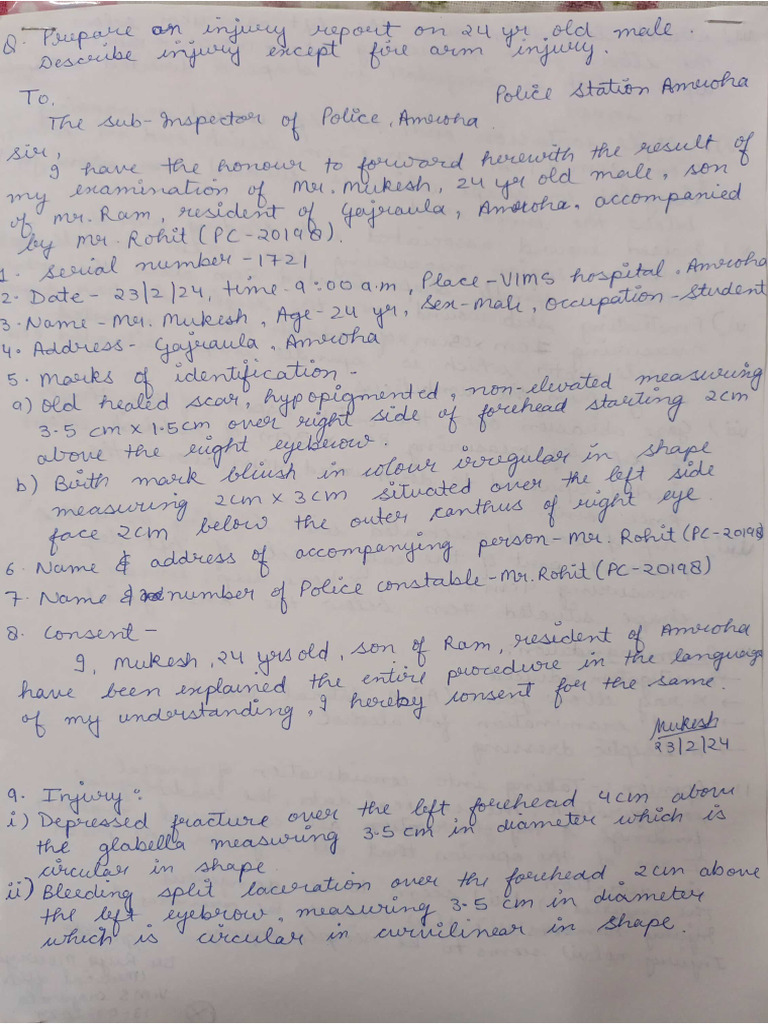 Q. Prepare an injury report on 24 yr old male.
Describe injury except fire arm injury.
Police Station Amroha
To,
The sub-Inspector of Police, Amroha
Sir,
I have the honour to forward herewith the result of
my examination of Mr. Mukesh, 24 yr old male, son
of Mr. Ram, resident of Gajraula, Amroha. accompanied
by Mr. Rohit (PC-20198).
1. Serial number - 1721
2. Date - 23/2/24, time - 9:00 a.m, Place - VIMS hospital. Amroha
3. Name - Mr. Mukesh, Age - 24 yr, Sex - Male, occupation - Student
4. Address - Gajraula, Amroha
5. Marks of identification -
a) Old healed scar, hypopigmented, non-elevated measuring
3.5 cm x 1.5cm over right side of forehead starting 2cm
above the right eyebrow.
b) Birth mark bliush in colour irregular in shape
measuring 2cm x 3cm situated over the left side
face 2cm below the outer canthus of right eye.
6. Name & address of accompanying person - Mr. Rohit (PC-20198)
7. Name & number of Police constable - Mr. Rohit (PC-20198)
8. Consent -
I, Mukesh, 24 yrs old, son of Ram, resident of Amroha
have been explained the entire procedure in the language
of my understanding, I hereby consent for the same.
Mukesh
23/2/24
9. Injury :-
i) Depressed fracture over the left forehead 4cm above
the glabella measuring 3.5 cm in diameter which is
circular in shape.
ii) Bleeding split laceration over the forehead 2cm above
the left eyebrow, measuring 3.5 cm in diameter
which is circular in curvilinear in shape.